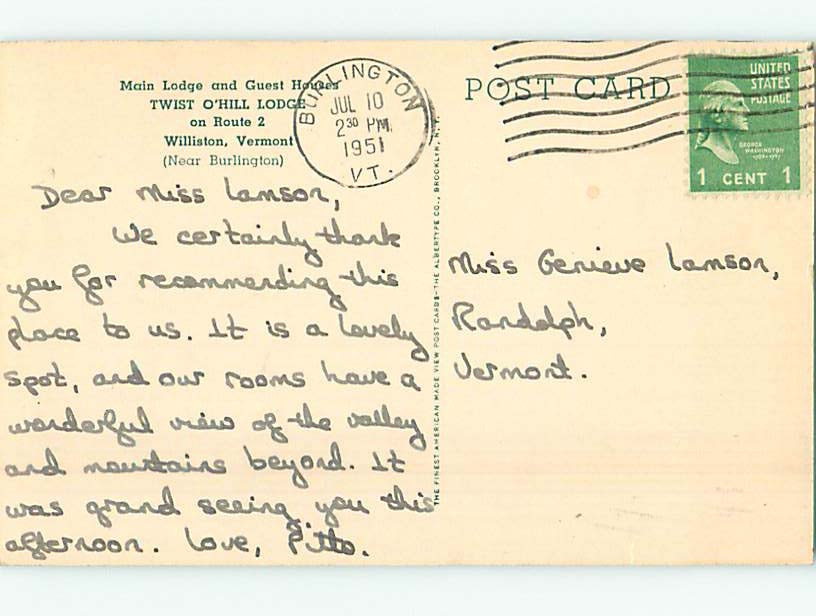 Main Lodge and Guest Houses
TWIST O'HILL LODGE
on Route 2
Williston, Vermont
(Near Burlington)
BURLINGTON
JUL 10
2 30 PM
1951
VT.
POST CARD
UNITED
STATES
POSTAGE
GEORGE
WASHINGTON
1 CENT 1
Dear Miss Lamson,
We certainly thank
you for recommending this
place to us. It is a lovely
spot, and our rooms have a
wonderful view of the valley
and mountains beyond. It
was grand seeing you this
afternoon. Love,
THE FINEST AMERICAN MADE VIEW POST CARDS—THE ALBERTYPE CO., BROOKLYN, N.Y.
Miss Genieve Lamson,
Randolph,
Vermont.